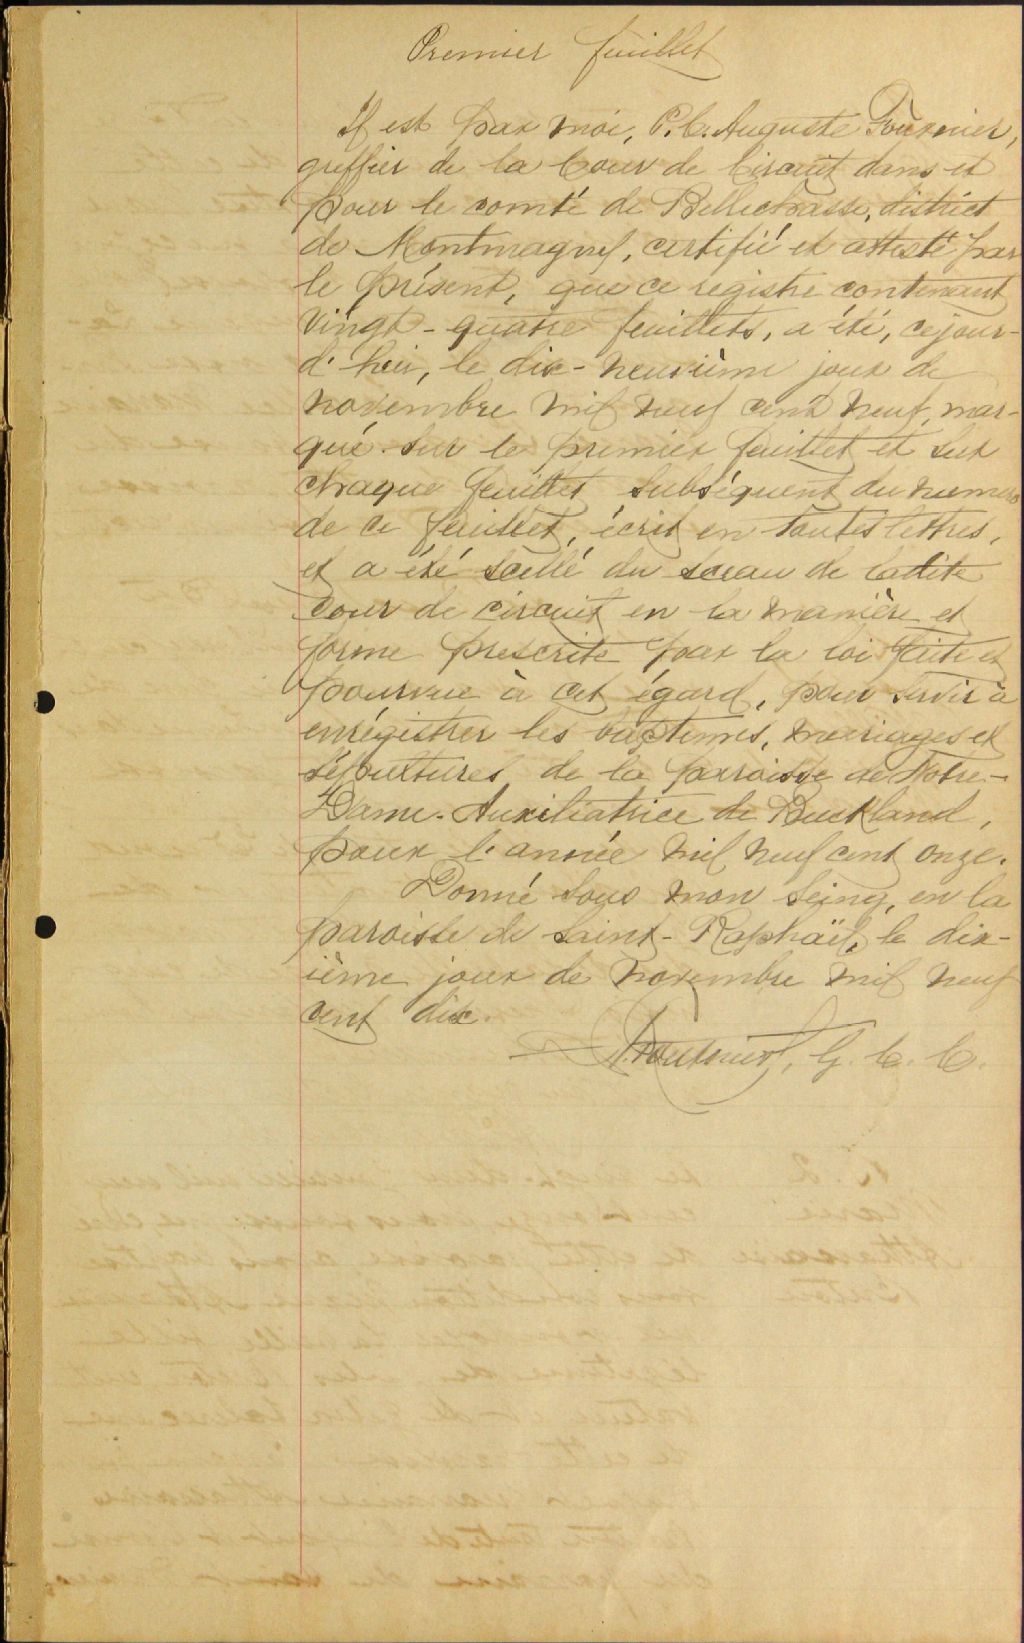 Premier feuillet
Il est par moi, P. C. Auguste Fournier,
greffier de la Cour de Circuit dans et
pour le comté de Bellechasse, district
de Montmagny, certifié et attesté par
le présent, que ce registre contenant
vingt-quatre feuillets, a été, cejour-
d'hui, le dix-neuvième jour de
novembre mil neuf cent neuf, mar-
qué sur le premier feuillet et sur
chaque feuillet subséquent du numero
de ce feuillet, écrit en toutes lettres,
et a été scellé du sceau de ladite
Cour de circuit en la manière et
forme prescrite par la loi faite et
pourvue à cet égard, pour servir à
enrégistrer les baptêmes, mariages et
sépultures de la paroisse de Notre-
Dame-Auxiliatrice de Buckland,
pour l'année mil neuf cent onze.
Donné sous mon seing, en la
paroisse de Saint-Raphaël, le dix-
ième jour de novembre mil neuf
cent dix.
G. C. C.